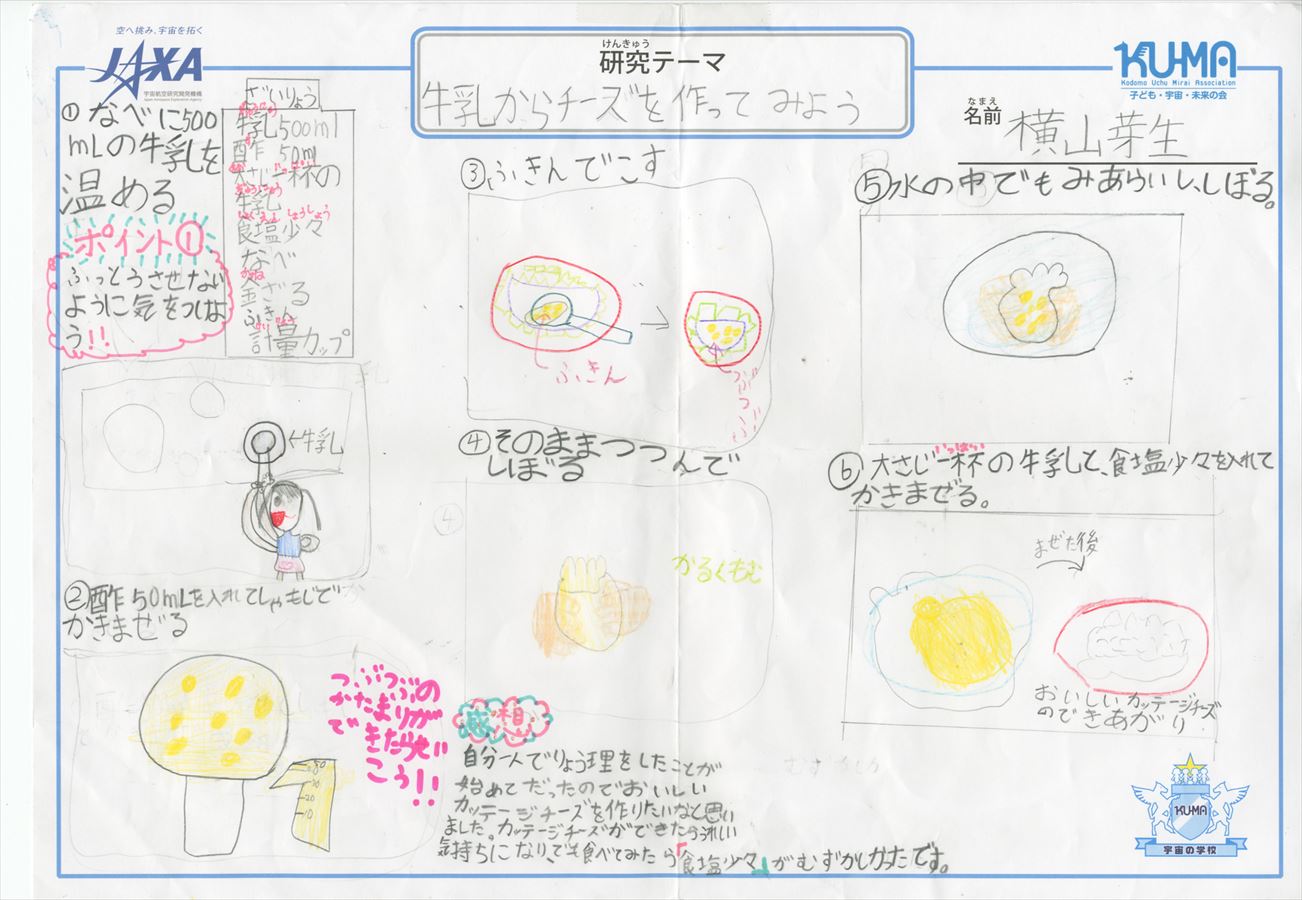 空へ挑み、宇宙を拓く
JAXA
宇宙航空研究開発機構
Japan Aerospace Exploration Agency
けんきゅう
研究テーマ
牛乳からチーズを作ってみよう
KU-MA
Kodomo Uchu Mirai Association
子ども・宇宙・未来の会
なまえ
名前 横山芽生
ざいりょう
牛乳500ml
酢 50ml
大さじ一杯の
ぎゅうにゅう
牛乳
しょくえんしょうしょう
食塩少々
なべ
かね
金ざる
ふきん
計量カップ
①なべに500
mLの牛乳を
温める
ポイント①
ふっとうさせない
ように気をつけよ
う!!
←牛乳
②酢50mLを入れてしゃもじで
かきまぜる
50
20
10
つぶつぶの
かたまりが
できたらせい
こう!!
③ふきんでこす
ふきん
つぶつぶ
④そのままつつんで
しぼる
④
かるくもむ
感想
自分一人でりょう理をしたことが
始めてだったのでおいしい
カッテージチーズを作りたいなと思い
ました。カッテージチーズができたらうれしい
気持ちになり、でも食べてみたら「食塩少々」がむずかしかったです。
⑤水の中でもみあらいし、しぼる。
いっぱい
⑥大さじ一杯の牛乳して、食塩少々を入れて
かきまぜる。
まぜた後
おいしいカッテージチーズ
のできあがり
KU-MA
宇宙の学校